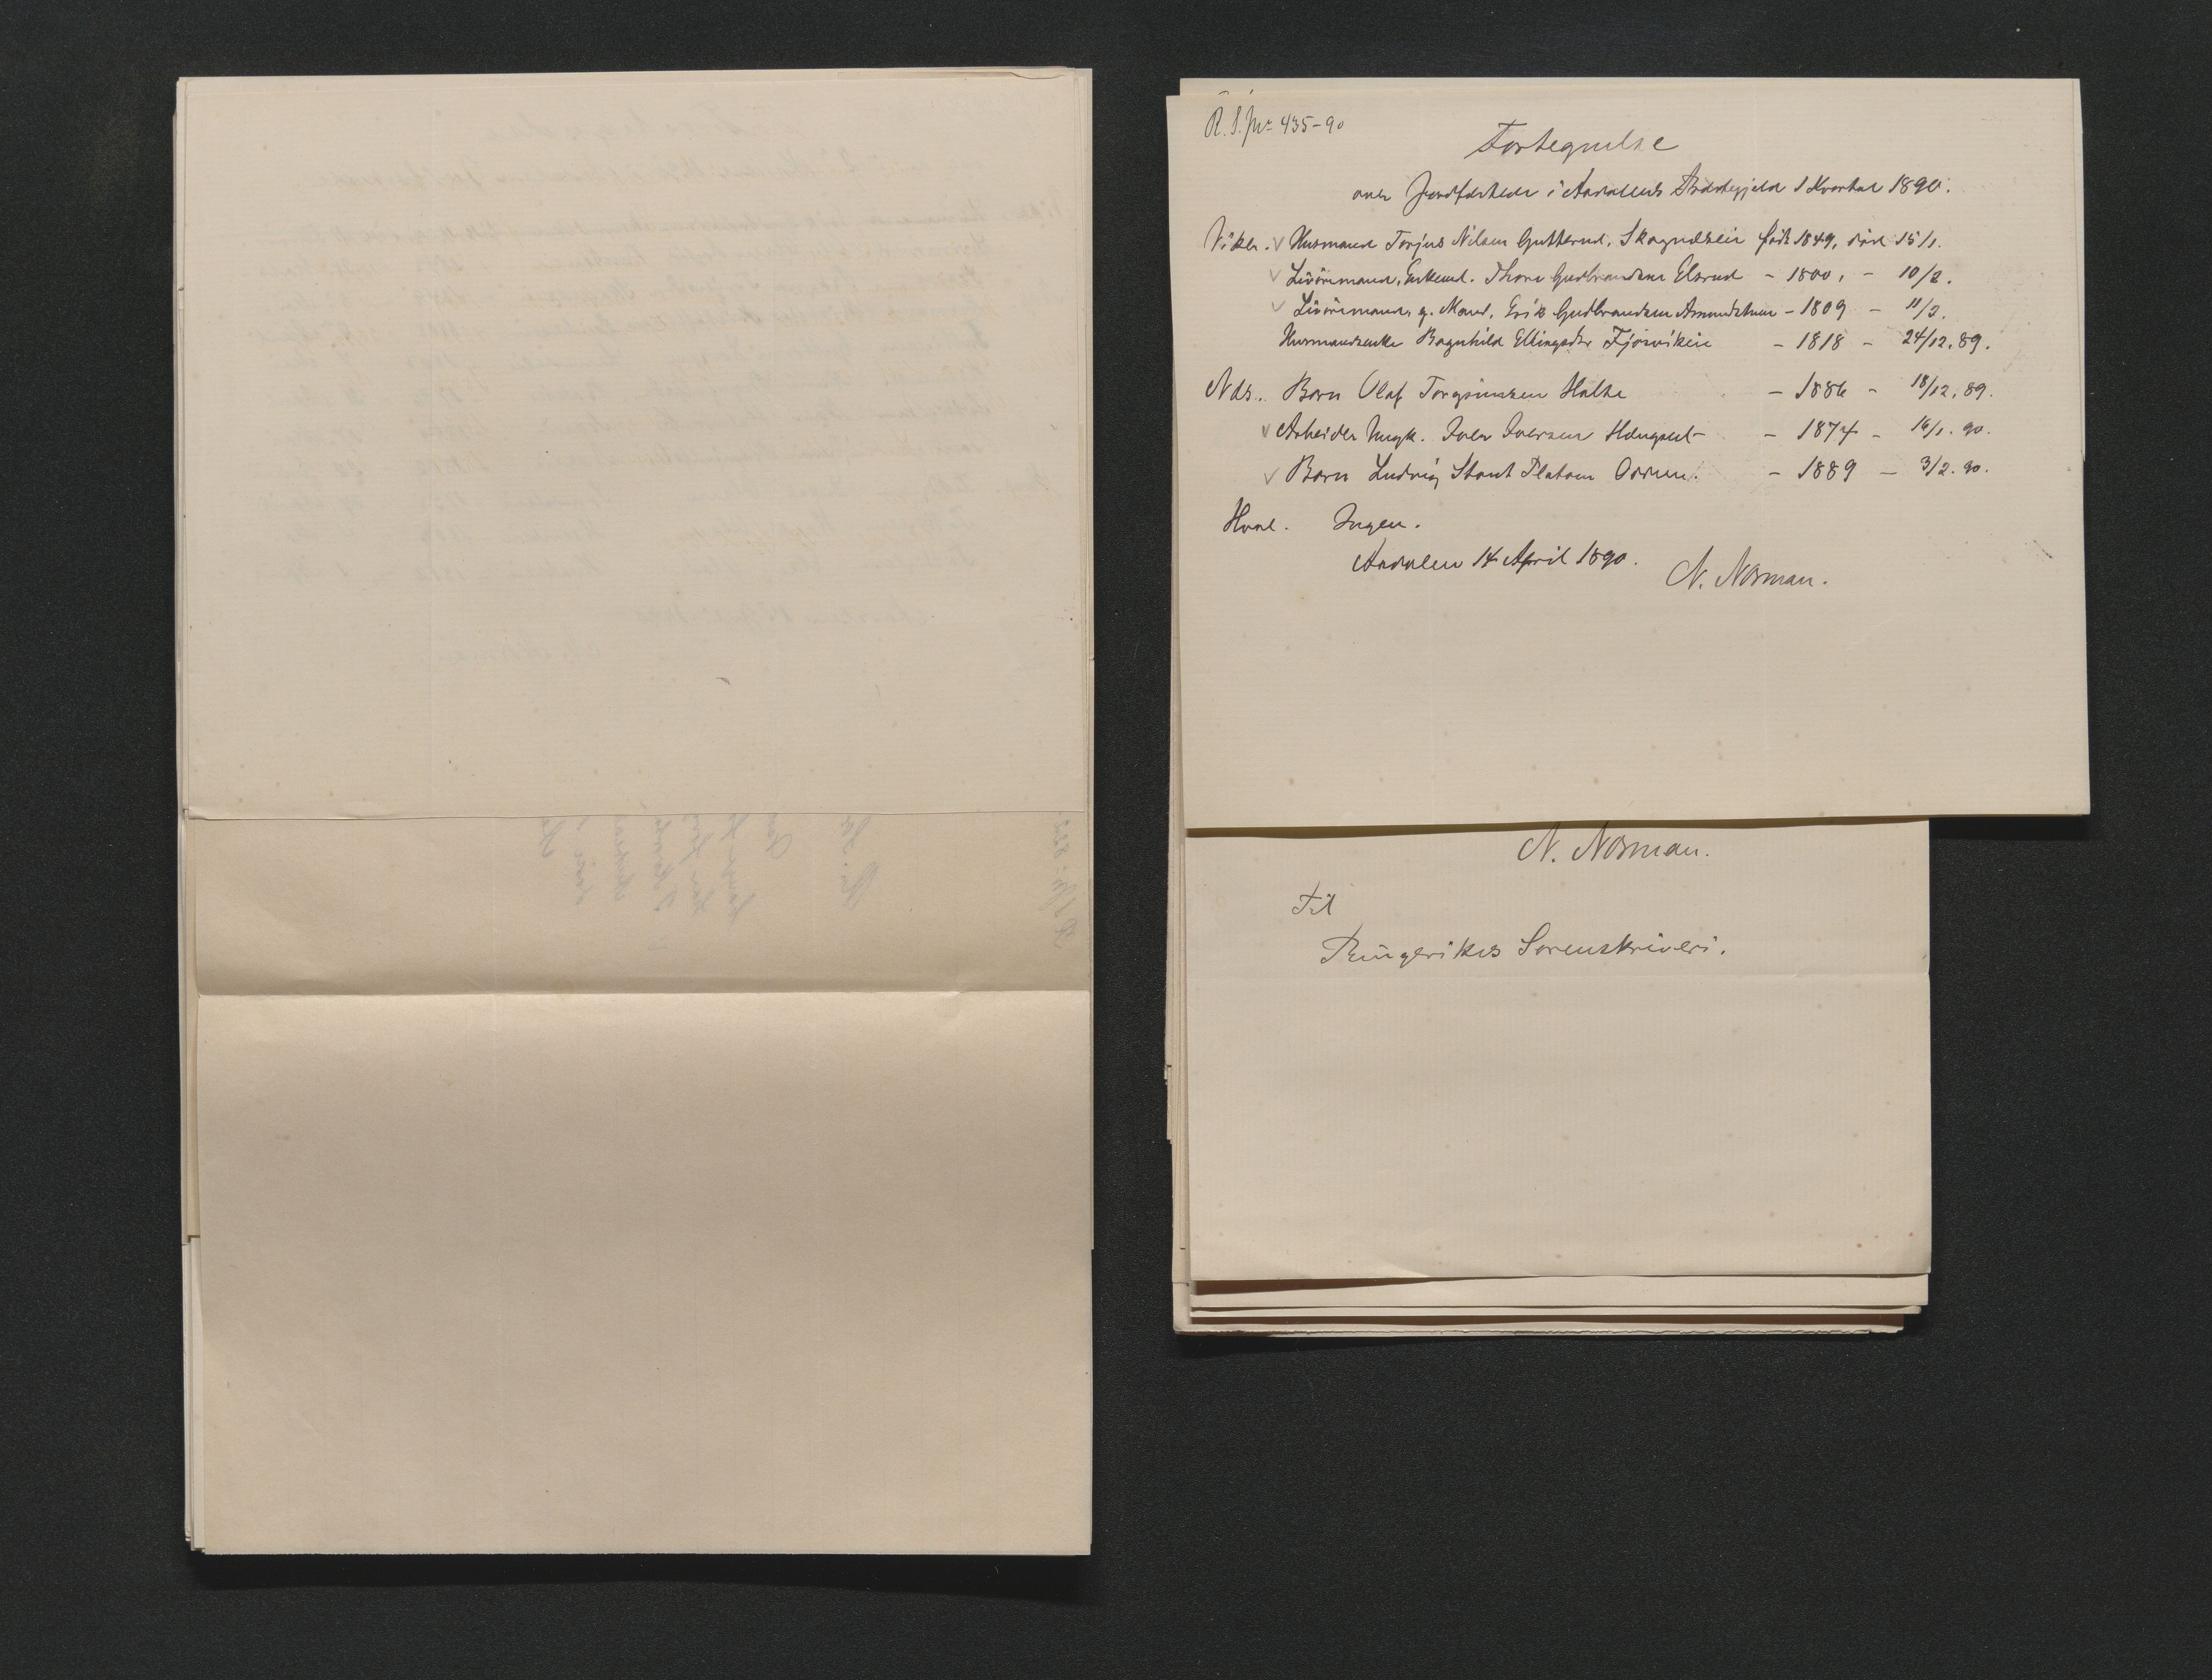 R. S. Jnr 435-90
Fortegnelse
over Jordfæstede i Aadalens Præstegjeld 1 Kvartal 1890.
Viker. Husmand Torjus Nilsen Gutterud, Skagnæseie født 1849, død 15/1.
Livöremand, Enkemd. Thore Gudbrandsen Elsrud - 1800, - 10/2.
Livöremand, g. Mand, Erik Gudbrandsen - 1809 - 11/2.
Husmandsenke Ragnhild Ellingsdtr Fjösvikeie - 1818 - 24/12.89.
Næs. Barn Olaf Torgrimsen Halte - 1886 - 18/12.89.
Arbeider Ungk. Iver Iversen - 1874 - 16/1.90.
Barn Ludvig Platam - 1889 - 3/2.90.
Hval. Ingen.
Aadalen 14 April 1890.
N. Norman.
N. Norman.
Til
Ringerikes Sorenskriveri.